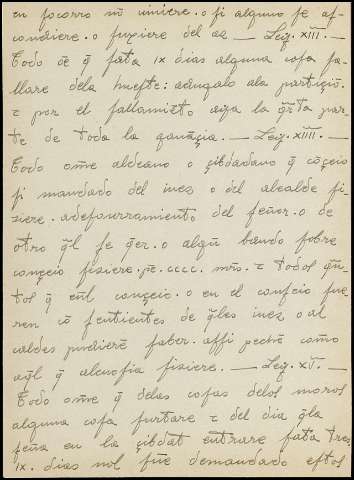 en socorro nō uiniere. o si alguno se as-
condiere. o fuxiere del aa — Leẏ. XIII. —
Todo oē q̄ fata ix dias alguna cosa fa-
llare dela hueste: adugalo ala partiçiō.
τ por el fallamiēto aẏa la q̄rta par-
te de toda la ganãçia. — Leẏ. XIIII. —
Todo om̄e aldeano o çibdadano q̄ cōçeio
si mandado del iuez o del alcalde fi-
ziere. a desonrramiento del señor. o de
otro q̄l se q̄er. o algū bando sobre
conçeio fiziere. pē. cccc. mr̄s. τ todos q̄n-
tos q̄ enl conçeio. o en el conseio fue
ren cō sentientes de q̄les iuez o al
caldes pudierē saber. assi pechē commo
aq̄l q̄ aleuosia fiziere. — Leẏ. XV. —
Todo om̄e q̄ delas cosas delos moros
alguna cosa furtare τ del dia q̄ la
seña en la çibdat entrare fata tres
ix. dias nol fue demandado estos